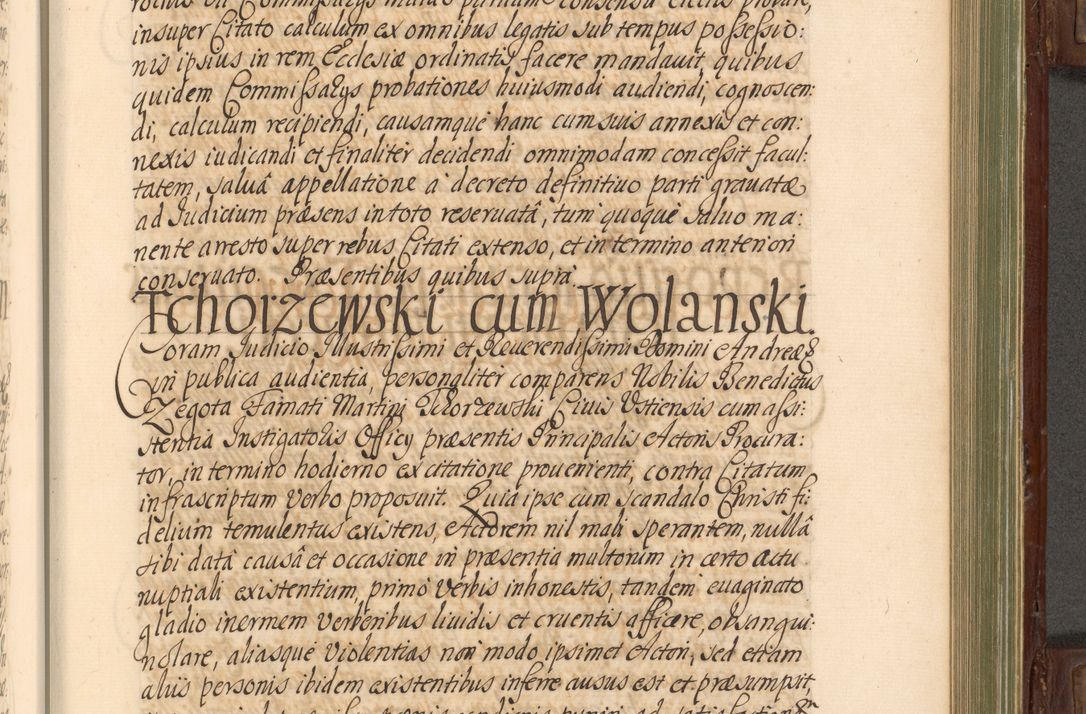 insuper Citato calculum ex omnibus legatis sub tempus possessio:
nis ipsius in rem Ecclesiæ ordinatis facere mandauit, quibus
quidem Commissarys probationes huiusmodi audiendi, cognoscen:
di, calculum recipiendi, causamque hanc cum suis annexis et con:
nexis iudicandi et finaliter decidendi omnimodam concessit facul:
tatem, saluâ appellatione à decreto definitiuo parti grauatæ
ad Iudicium præsens in toto reseruatâ, tum quoque saluo ma:
nente arresto super rebus Citati extenso, et in termino anteriori
conseruato. Præsentibus quibus supra.
Tchorzewski cum Wolanski.
Coram Iudicio Illustrissimi et Reuerendissimi Domini Andreæ
in publica audientia, personaliter comparens Nobilis Benedictus
Zegota Famati Martini Tchorzewski Ciuis Ustiensis cum assi:
stentia Instigatoris Officy præsentis Principalis Actoris Procura:
tor, in termino hodierno ex citatione prouenienti, contra Citatum
infrascriptum verbo proposuit. Quia ipse cum scandalo Christi fi:
delium temulentus existens, Actorem nil mali sperantem, nullâ
sibi datâ causâ et occasione in præsentia multorum in certo actu
nuptiali existentium, primò verbis inhonestis, tandem euaginato
gladio inermem verberibus liuidis et cruentis afficere, obsangui:
nolare, aliasque violentias non modo ipsimet Actori, sed etiam
aliis personis ibidem existentibus inferre ausus est et præsumpsit,